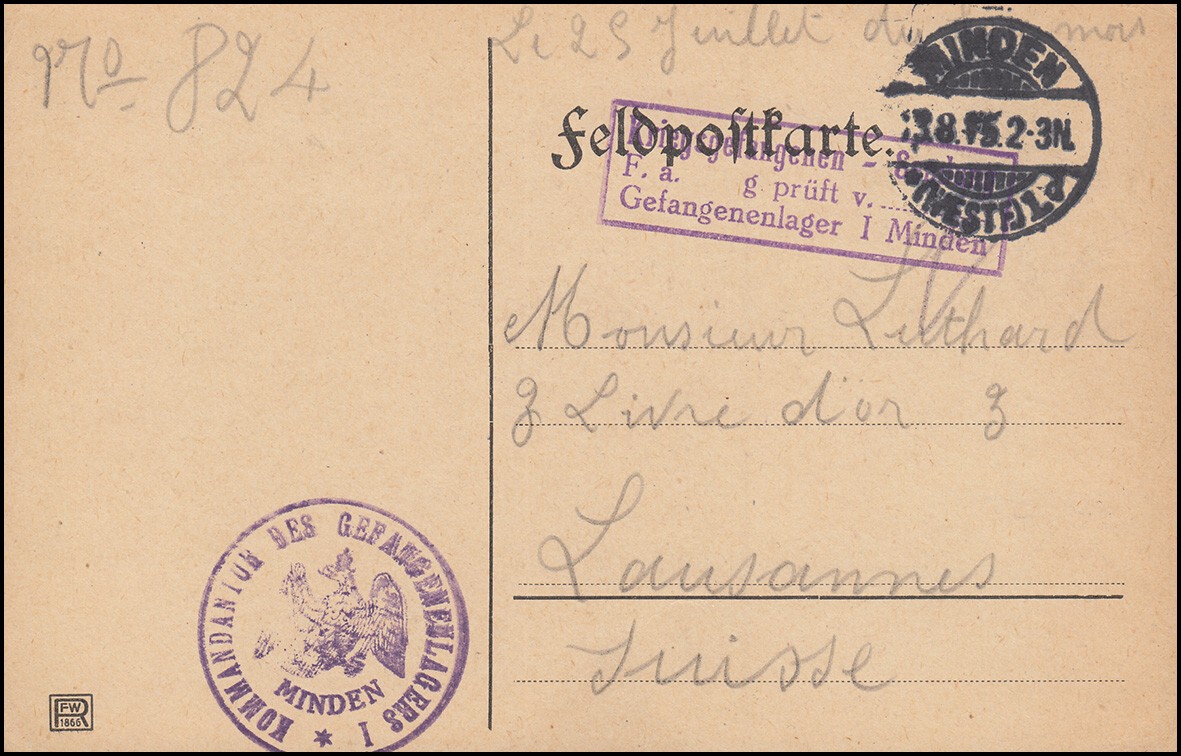 No 824
Le 25 Juillet du mois
MINDEN
8.15.2-3N.
(WESTF.) 1.
Feldpostkarte.
Kriegsgefangenen -
F. a. g prüft v.
Gefangenenlager I Minden
Monsieur Luthard
3 Livre d'or 3
Lausannes
Suisse
KOMMANDANTUR DES GEFANGENENLAGERS I
MINDEN
FW
R
1866